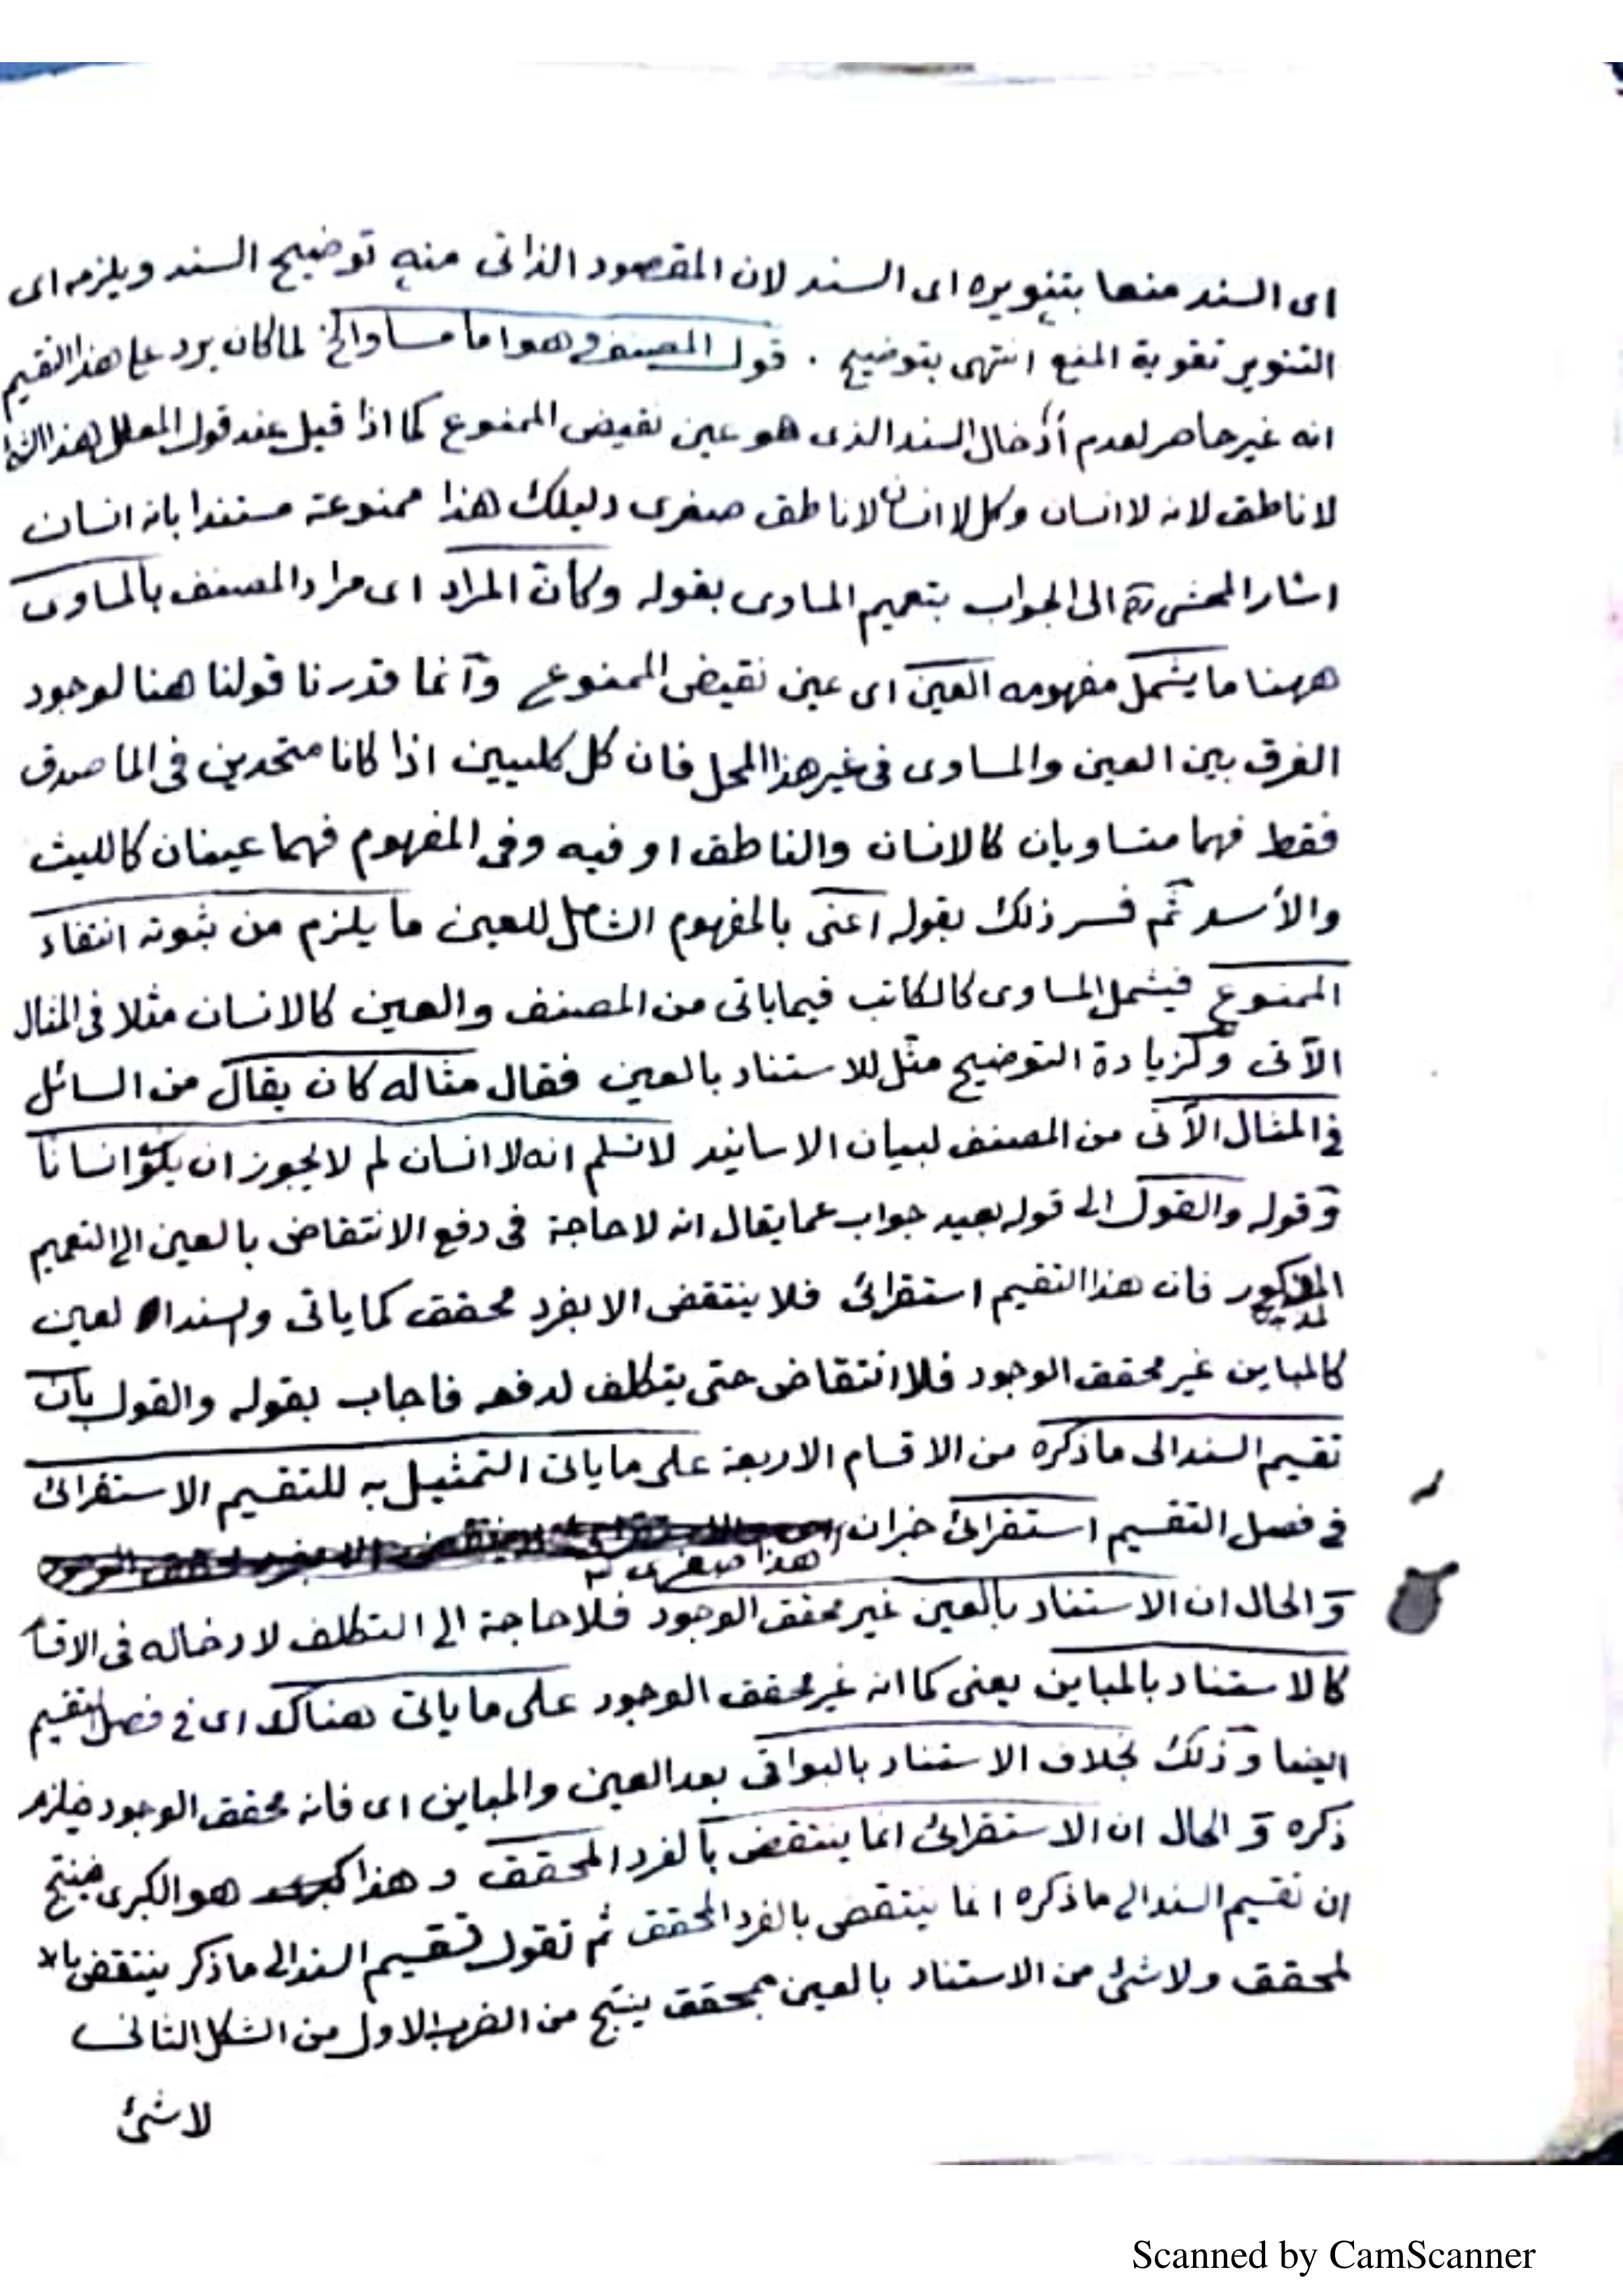 اى السند منعا بتنويره اى السند لان المقصود الذاتى منه توضيح السند ويلزمه اى
التنوير تقوية المنع انتهى بتوضيح . قول المصنف وهو اما مساو الخ لما كان يرد على هذا التقسيم
انه غير حاصر لعدم ادخال السند الذى هو عين نقيض الممنوع كما اذا قيل عند قول المعلل هذا
لا ناطق لانه لا انسان وكل لا انسان لا ناطق صغرى دليلك هذا ممنوعة مستندا بانه انسان
اشار المحشى ره الى الجواب بتعميم المساوى بقوله وكأن المراد اى مراد المصنف بالمساوى
ههنا ما يشمل مفهومه العين اى عين نقيض الممنوع وانما قدرنا قولنا هنا لوجود
الفرق بين العين والمساوى فى غير هذا المحل فان كل كليين اذا كانا متحدين فى الماصدق
فقط فهما متساويان كالانسان والناطق او فيه وفى المفهوم فهما عينان كالليث
والأسد ثم فسر ذلك بقوله اعنى بالمفهوم الشامل للعين ما يلزم من ثبوته انتفاء
الممنوع فيشمل المساوى كالكاتب فيما ياتى من المصنف والعين كالانسان مثلا فى المثال
الآتى ولزيادة التوضيح مثل للاستناد بالعين فقال مثاله كان يقال من السائل
فى المثال الآتى من المصنف لبيان الاسانيد لا نسلم انه لا انسان لم لا يجوز ان يكون انسانا
وقوله والقول الى قوله بعيد جواب عما يقال انه لا حاجة فى دفع الانتقاض بالعين الى التعميم
المذكور فان هذا التقسيم استقرائى فلا ينتقض الا بفرد محقق كما ياتى والسند العين
كالمباين غير محقق الوجود فلا انتقاض حتى يتكلف لدفعه فاجاب بقوله والقول بان
تقسيم السند الى ما ذكره من الاقسام الاربعة على ما ياتى التمثيل به للتقسيم الاستقرائى
فى فصل التقسيم استقرائى خبر ان
هذا صغرى
والحال ان الاستناد بالعين غير محقق الوجود فلا حاجة الى التكلف لادخاله فى
كالاستناد بالمباين يعنى كما انه غير محقق الوجود على ما ياتى هناك اى فى فصل التقسيم
ايضا وذلك بخلاف الاستناد بالبواقى بعد العين والمباين اى فانه محقق الوجود فيلزم
ذكره و الحال ان الاستقرائى انما ينتقض بالفرد المحقق و هذا هو الكبرى فينتج
ان تقسيم السند الى ما ذكره انما ينتقض بالفرد المحقق ثم نقول تقسيم السند الى ما ذكر ينتقض
لمحقق ولا شئ من الاستناد بالعين بمحقق ينتج من الضرب الاول من الشكل الثانى
لا شئ
Scanned by CamScanner